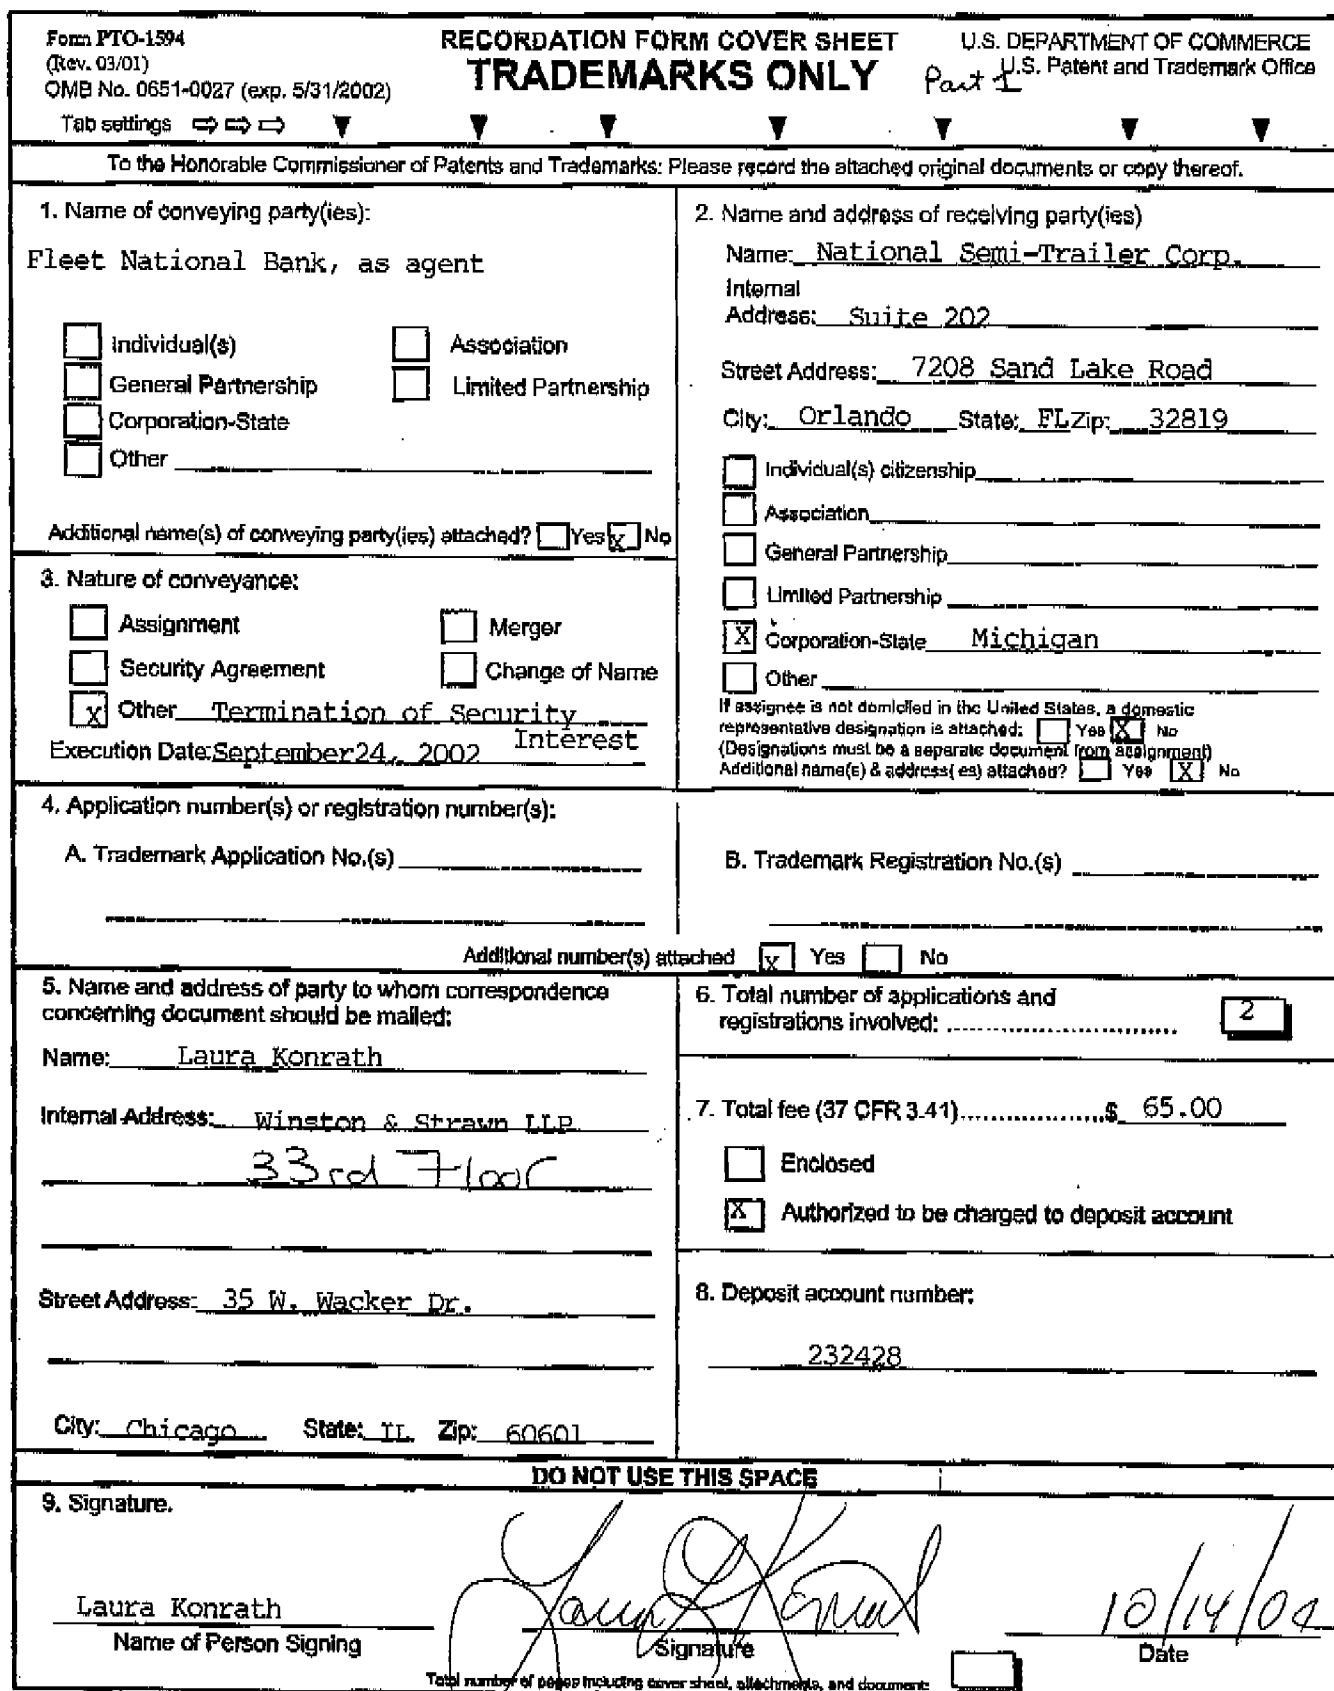 Form PTO-1594
(Rev. 03/01)
OMB No. 0651-0027 (exp. 5/31/2002)
RECORDATION FORM COVER SHEET
TRADEMARKS ONLY
Part 1
U.S. DEPARTMENT OF COMMERCE
U.S. Patent and Trademark Office
Tab settings ⇨ ⇨ ⇨ ▼ ▼ ▼ ▼ ▼ ▼ ▼
To the Honorable Commissioner of Patents and Trademarks: Please record the attached original documents or copy thereof.
1. Name of conveying party(ies):
Fleet National Bank, as agent
Individual(s) Association
General Partnership Limited Partnership
Corporation-State
Other
Additional name(s) of conveying party(ies) attached? Yes X No
2. Name and address of receiving party(ies)
Name: National Semi-Trailer Corp.
Internal
Address: Suite 202
Street Address: 7208 Sand Lake Road
City: Orlando State: FL Zip: 32819
Individual(s) citizenship
Association
General Partnership
Limited Partnership
X Corporation-State Michigan
Other
If assignee is not domiciled in the United States, a domestic
representative designation is attached: Yes X No
(Designations must be a separate document from assignment)
Additional name(s) & address( es) attached? Yes X No
3. Nature of conveyance:
Assignment Merger
Security Agreement Change of Name
X Other Termination of Security
Interest
Execution Date: September 24, 2002
4. Application number(s) or registration number(s):
A. Trademark Application No.(s)
B. Trademark Registration No.(s)
Additional number(s) attached X Yes No
5. Name and address of party to whom correspondence
concerning document should be mailed:
Name: Laura Konrath
Internal Address: Winston & Strawn LLP
33rd Floor
Street Address: 35 W. Wacker Dr.
City: Chicago State: IL Zip: 60601
6. Total number of applications and
registrations involved: 2
7. Total fee (37 CFR 3.41) $ 65.00
Enclosed
X Authorized to be charged to deposit account
8. Deposit account number:
232428
DO NOT USE THIS SPACE
9. Signature.
Laura Konrath
Name of Person Signing
Laura Konrath
Signature
10/14/04
Date
Total number of pages including cover sheet, attachments, and document: